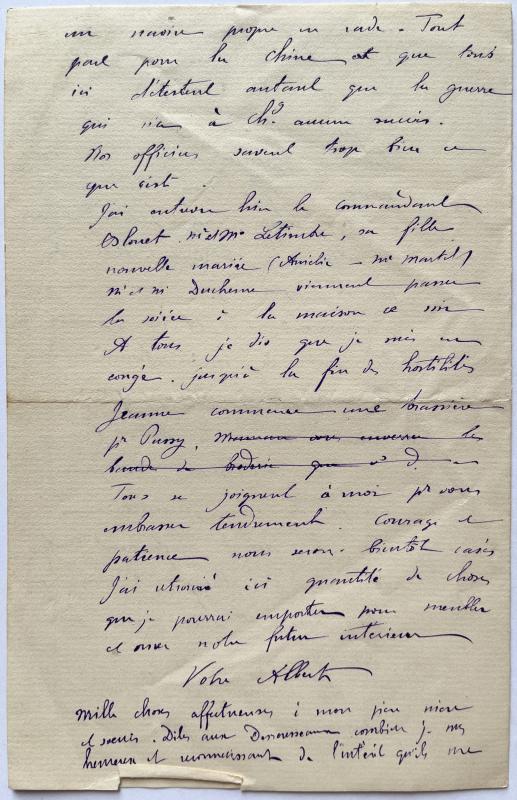 un navire propre en rade. Tout
part pour la Chine et que tous
ici détestent autant que la guerre
qui n'a à aucun succès.
Nos officiers savent trop bien ce
que c'est.
J'ai entrevu hier le commandant
Mr et Me Letimbre, sa fille
nouvelle mariée (Amélie - me Martel)
Mr et Me Duchesne viennent passer
la soirée à la maison ce soir
A tous je dis que je suis en
congé jusqu'à la fin des hostilités
Jeanne commence une brassière
pr Pussy. Maman vous enverra les
bandes de broderie que
Tous se joignent à moi pr vous
embrasser tendrement. Courage et
patience nous serons bientôt casés
J'ai retrouvé ici quantité de choses
que je pourrai emporter pour meubler
et orner notre futur intérieur
Votre Albert
Mille choses affectueuses à mon père mère
et soeurs. Dites aux Desrousseaux combien je suis
heureux et reconnaissant de l'intérêt qu'ils me